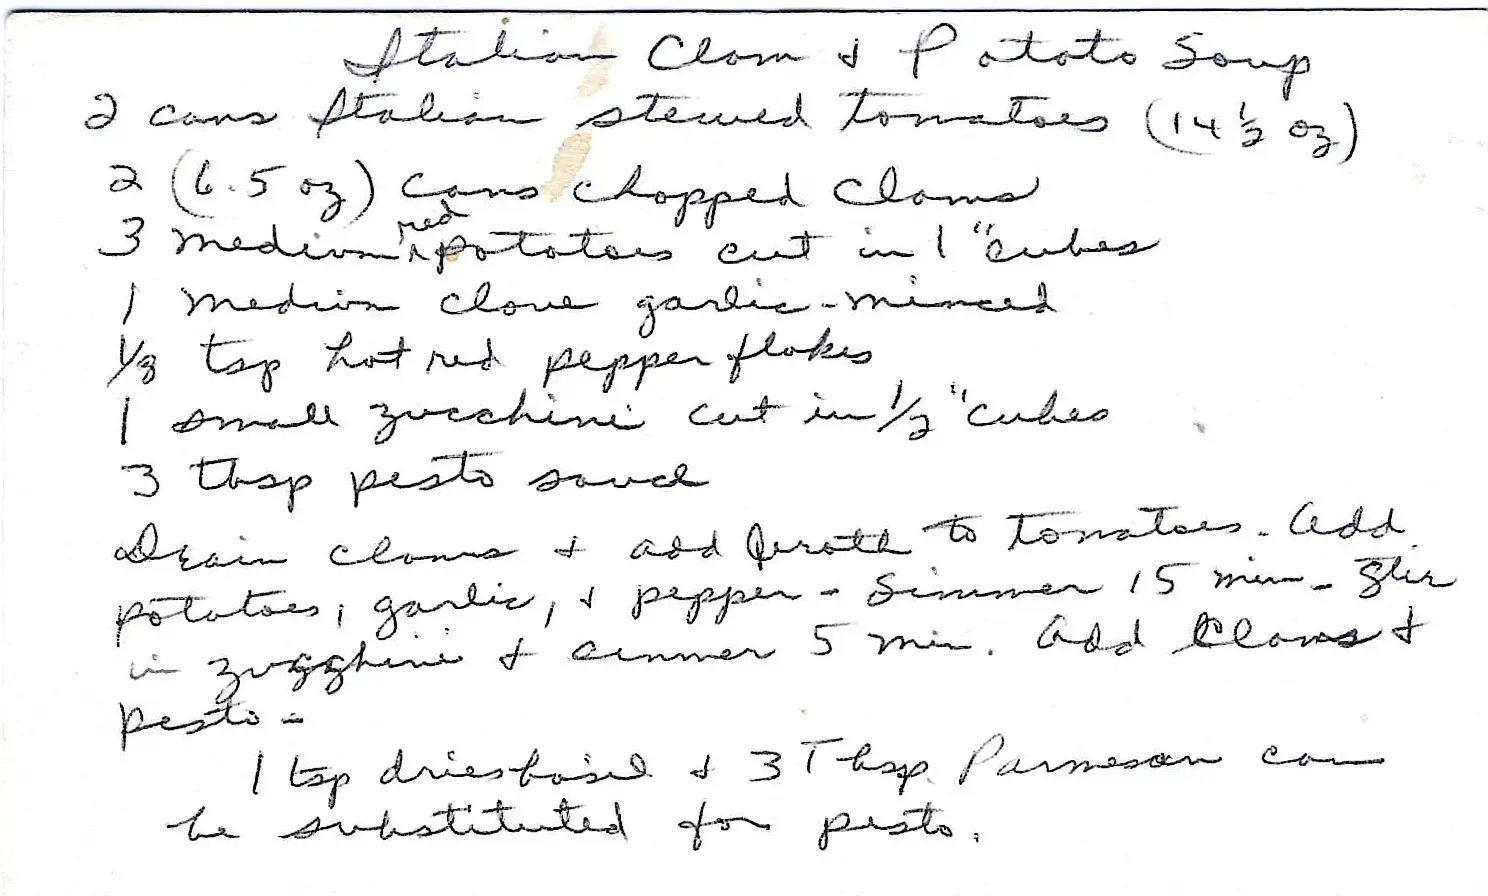 Italian Clam & Potato Soup
2 cans Italian stewed tomatoes (14 1/2 oz)
2 (6.5 oz) cans chopped clams
3 medium red potatoes cut in 1" cubes
1 medium clove garlic - minced
1/8 tsp hot red pepper flakes
1 small zucchini cut in 1/2" cubes
3 tbsp pesto sauce
Drain clams & add broth to tomatoes. Add
potatoes, garlic, & pepper - Simmer 15 min - Stir
in zugghini & simmer 5 min. Add Clams &
pesto -
1 tsp dried basil & 3 Tbsp. Parmesan can
be substituted for pesto.